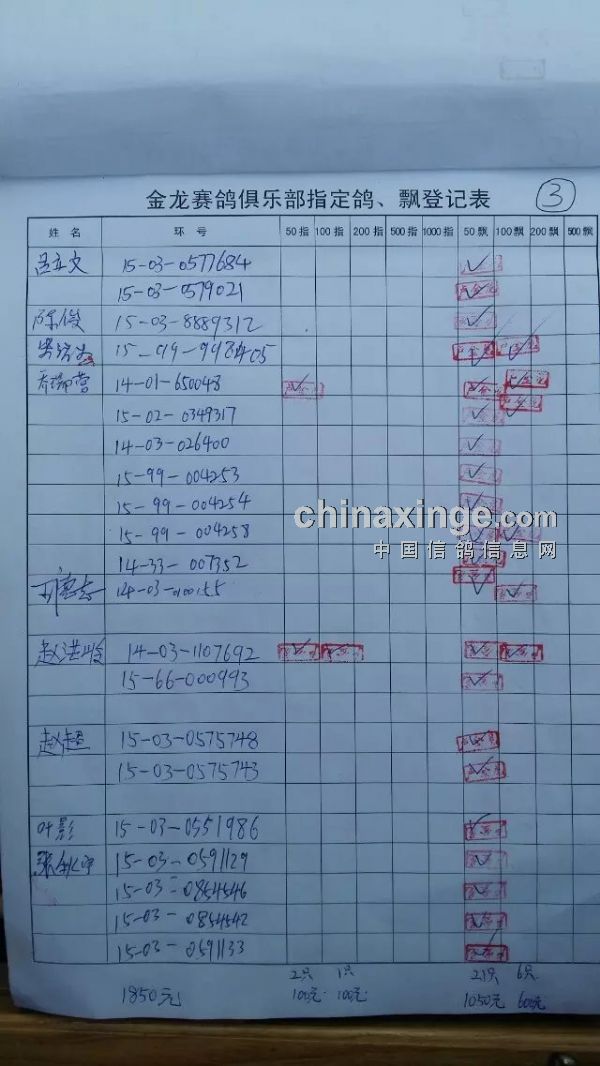 金龙赛鸽俱乐部指定鸽、飘登记表 3
姓名 环号 50指 100指 200指 500指 1000指 50飘 100飘 200飘 500飘
吕立文 15-03-0577684
15-03-0579021
陈俊 15-03-8889312
15-99-998405
14-01-650048
15-02-0349317
14-03-026400
15-99-004253
15-99-004254
15-99-004258
14-33-007352
14-03-
赵洪 14-03-1107692
15-66-000993
赵超 15-03-0575748
15-03-0575743
叶影 15-03-0551986
张 15-03-0591129
15-03-0854546
15-03-0854542
15-03-0591133
2只 1只 21只 6只
1850元 100元 100元 1050元 600元
chinaxinge.com
中国信鸽信息网